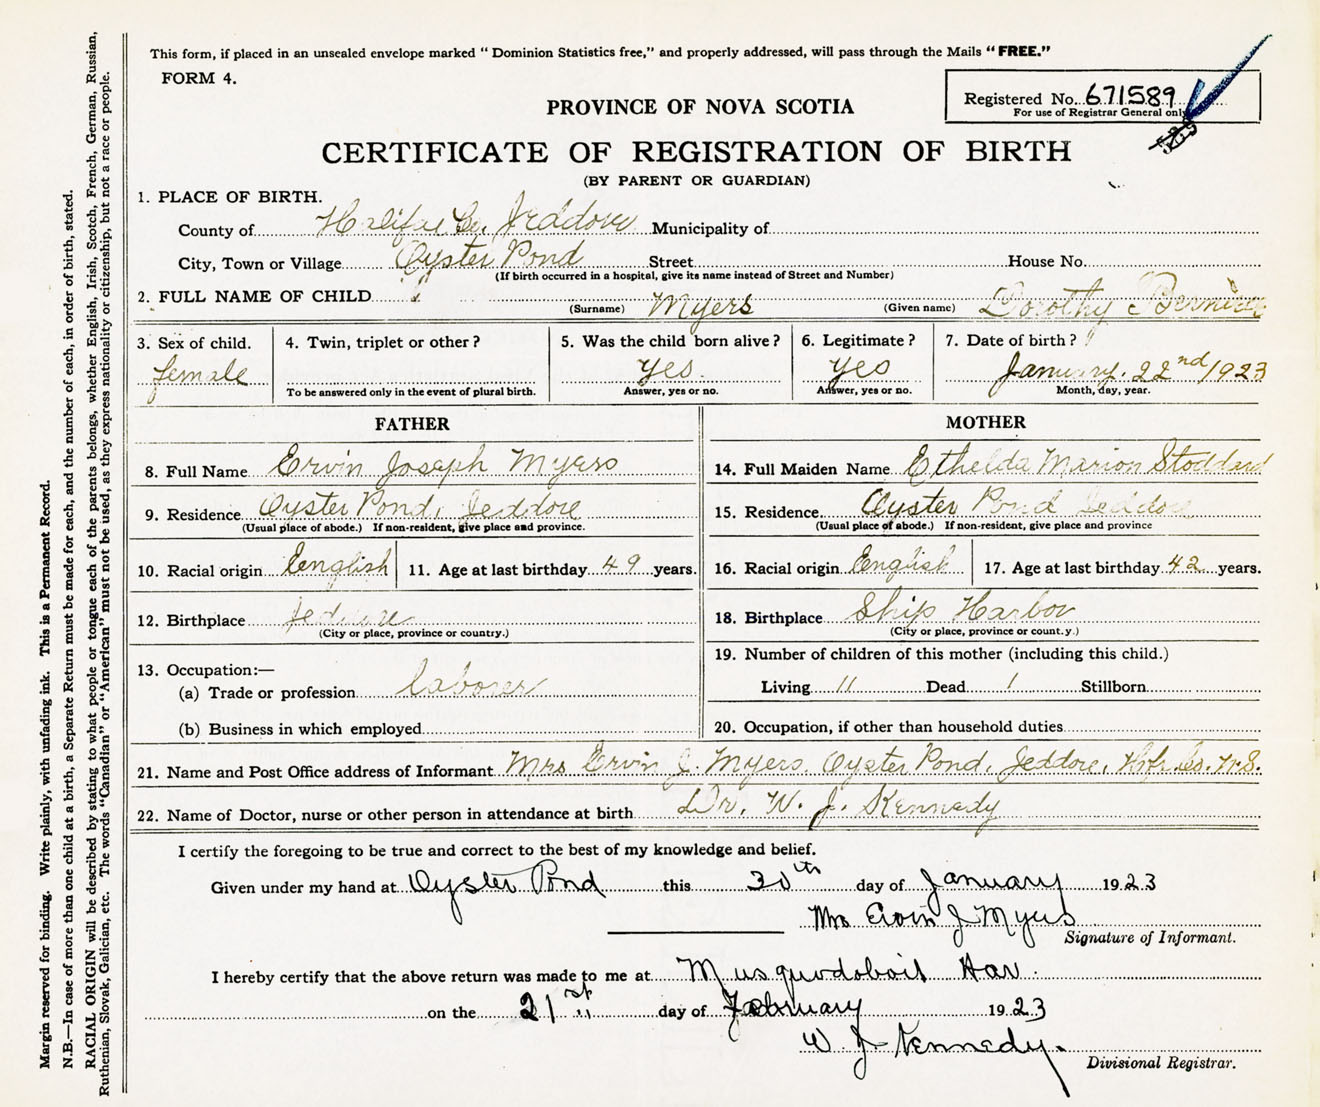 This form, if placed in an unsealed envelope marked "Dominion Statistics free," and properly addressed, will pass through the Mails "FREE."
FORM 4.
Registered No. 671589
For use of Registrar General only
PROVINCE OF NOVA SCOTIA
CERTIFICATE OF REGISTRATION OF BIRTH
(BY PARENT OR GUARDIAN)
1. PLACE OF BIRTH.
County of Halifax Co. Jeddore Municipality of
City, Town or Village Oyster Pond Street House No.
(If birth occurred in a hospital, give its name instead of Street and Number)
2. FULL NAME OF CHILD (Surname) Myers (Given name) Dorothy Bernice
3. Sex of child. 4. Twin, triplet or other? 5. Was the child born alive? 6. Legitimate? 7. Date of birth?
female yes yes January. 22nd/1923
To be answered only in the event of plural birth. Answer, yes or no. Answer, yes or no. Month, day, year.
FATHER
8. Full Name Ervin Joseph Myers
9. Residence Oyster Pond, Jeddore
(Usual place of abode.) If non-resident, give place and province.
10. Racial origin English 11. Age at last birthday 49 years.
12. Birthplace Jeddore
(City or place, province or country.)
13. Occupation:—
(a) Trade or profession laborer
(b) Business in which employed
MOTHER
14. Full Maiden Name Ethelda Marion Stoddard
15. Residence Oyster Pond Jeddore
(Usual place of abode.) If non-resident, give place and province
16. Racial origin English 17. Age at last birthday 42 years.
18. Birthplace Ship Harbor
(City or place, province or count.y.)
19. Number of children of this mother (including this child.)
Living 11 Dead 1 Stillborn
20. Occupation, if other than household duties
21. Name and Post Office address of Informant Mrs Ervin J. Myers. Oyster Pond, Jeddore, Hfx. Co. N.S.
22. Name of Doctor, nurse or other person in attendance at birth Dr. W. J. Kennedy
I certify the foregoing to be true and correct to the best of my knowledge and belief.
Given under my hand at Oyster Pond this 30th day of January 1923
Mrs Ervin J Myers
Signature of Informant.
I hereby certify that the above return was made to me at Musquodoboit Har.
on the 21st day of February 1923
W J Kennedy.
Divisional Registrar.
Margin reserved for binding. Write plainly, with unfading ink. This is a Permanent Record.
N.B.—In case of more than one child at a birth, a Separate Return must be made for each, and the number of each, in order of birth, stated.
RACIAL ORIGIN will be described by stating to what people or tongue each of the parents belongs, whether English, Irish, Scotch, French, German, Russian,
Ruthenian, Slovak, Galician, etc. The words "Canadian" or "American" must not be used, as they express nationality or citizenship, but not a race or people.